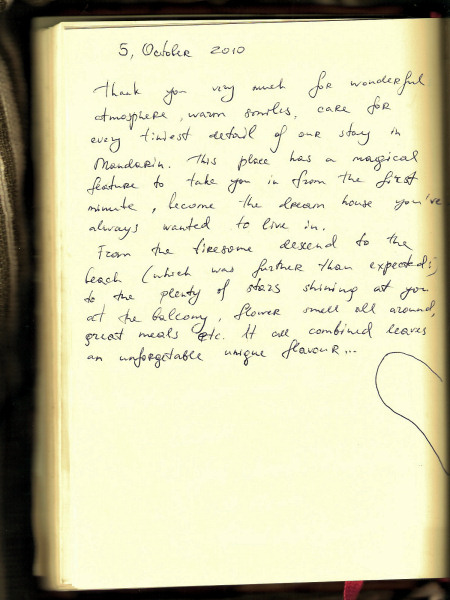 5, October 2010
Thank you very much for wonderful
atmosphere, warm smiles, care for
every tiniest detail of our stay in
Mandarin. This place has a magical
feature to take you in from the first
minute, become the dream house you've
always wanted to live in.
From the tiresome descend to the
beach (which was further than expected;)
to the plenty of stars shining at you
at the balcony, flower smell all around,
great meals etc. It all combined leaves
an unforgetable unique flavour...